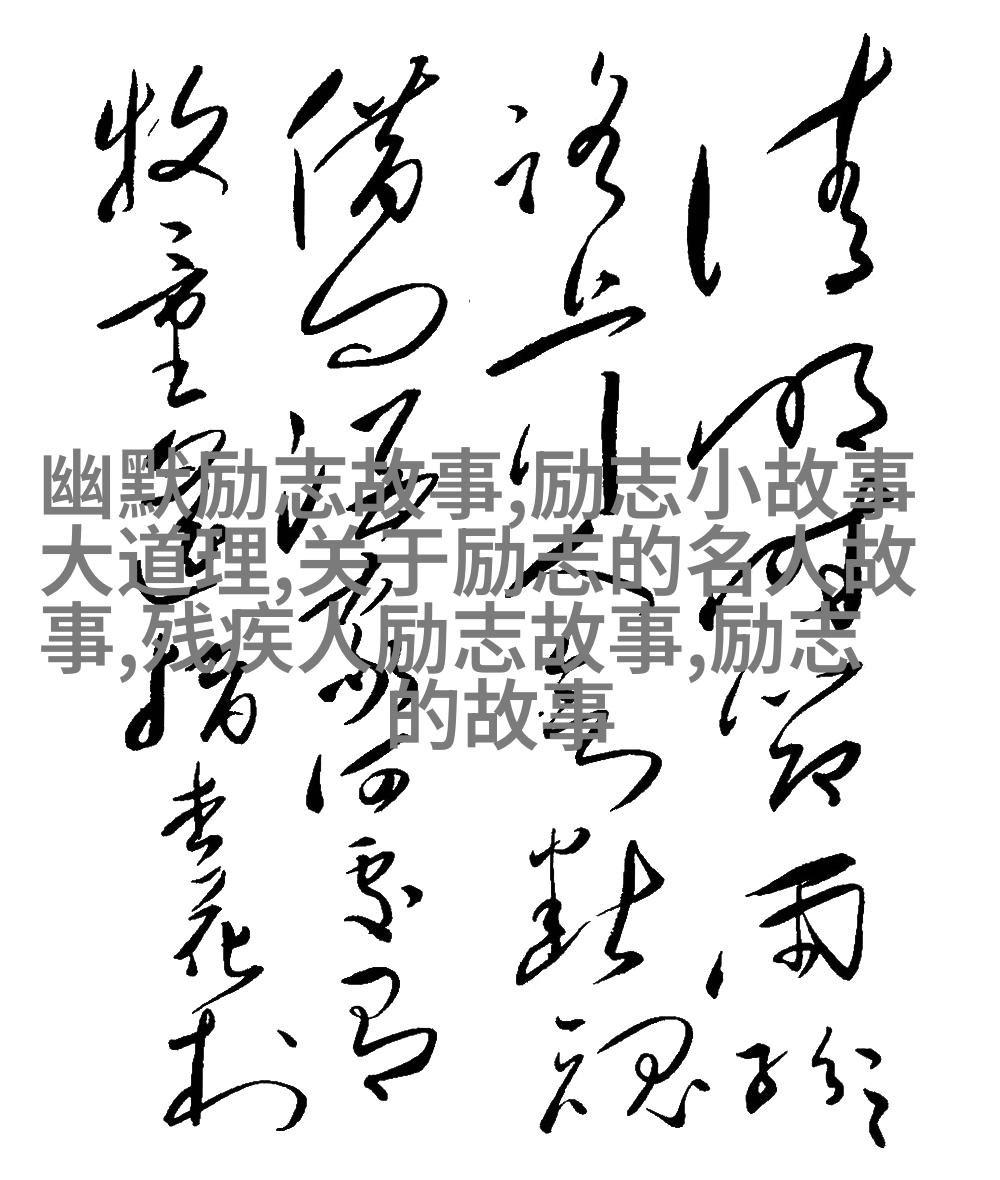 清明時節雨紛々
路上行人欲斷魂
借问酒家何處有
牧童遙指杏花村
幽默励志故事,励志小故事
大道理,关于励志的名人故
事,残疾人励志故事,励志
的故事